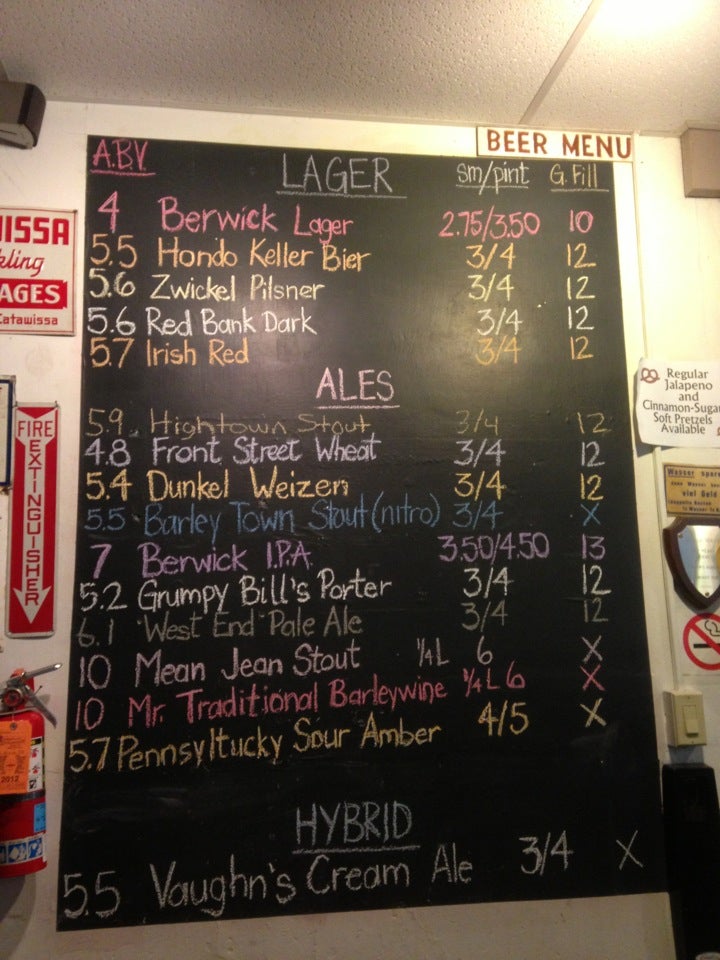 BEER MENU
A.B.V. LAGER sm/pint G. Fill
4 Berwick Lager 2.75/3.50 10
5.5 Hondo Keller Bier 3/4 12
5.6 Zwickel Pilsner 3/4 12
5.6 Red Bank Dark 3/4 12
5.7 Irish Red 3/4 12
ALES
5.9 Hightown Stout 3/4 12
4.8 Front Street Wheat 3/4 12
5.4 Dunkel Weizen 3/4 12
5.5 Barley Town Stout (nitro) 3/4 X
7 Berwick I.P.A 3.50/4.50 13
5.2 Grumpy Bill's Porter 3/4 12
6.1 West End Pale Ale 3/4 12
10 Mean Jean Stout ¼L 6 X
10 Mr. Traditional Barleywine ¼L 6 X
5.7 Pennsyltucky Sour Amber 4/5 X
HYBRID
5.5 Vaughn's Cream Ale 3/4 X
WISSA
kling
AGES
Catawissa
FIRE
EXTINGUISHER
2012
Regular
Jalapeno
and
Cinnamon-Sugar
Soft Pretzels
Available
Wasser spare
viel Geld